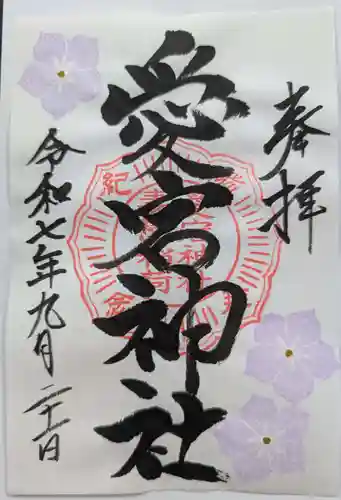 奉拝
愛宕神社
令和七年九月二十一日